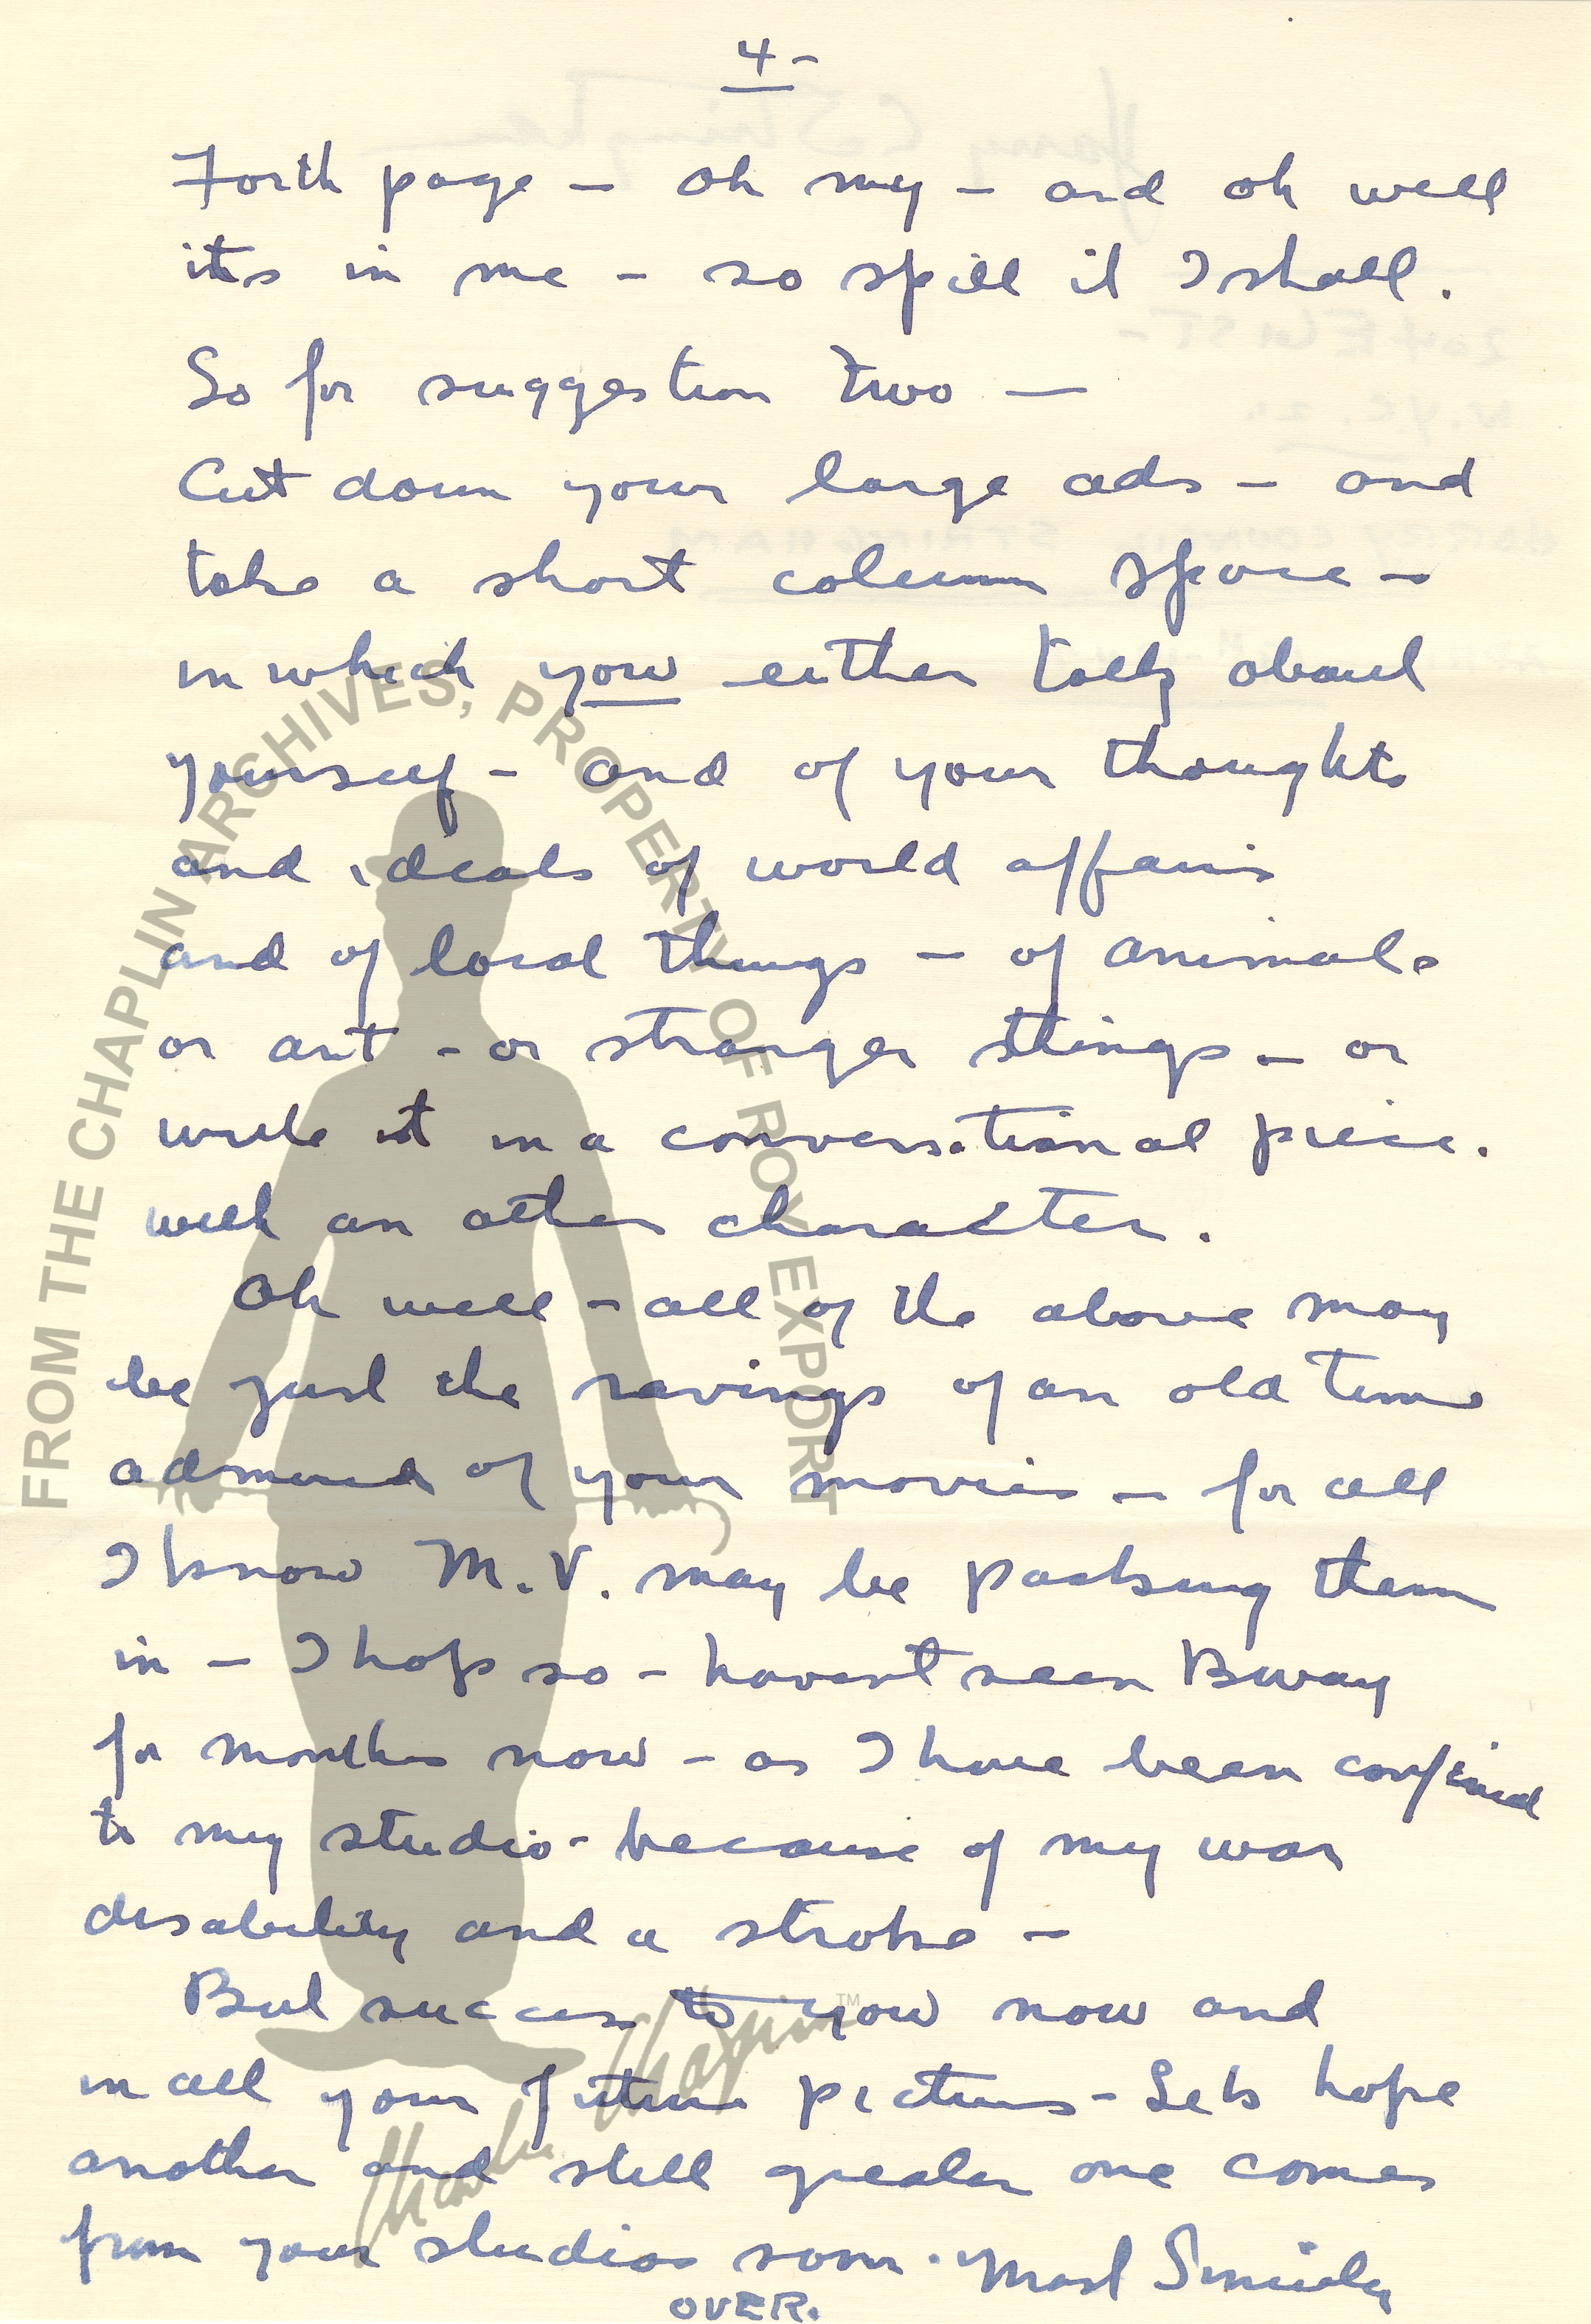 4-
Forth page - oh my - and oh well
its in me - so spill it I shall.
So for suggestion two -
Cut down your large ads - and
take a short column space -
in which you either talk about
yourself - and of your thoughts
and ideals of world affairs
and of local things - of animals
or art - or stranger things - or
write it in a conversational piece.
with an other character.
Oh well - all of the above may
be just the ravings of an old time
admirer of your movies - for all
I know M.V. may be packing them
in - I hope so - havent seen Bway
for months now - as I have been confined
to my studio - because of my war
disability and a stroke -
But success to you now and
in all your future pictures - Lets hope
another and still greater one comes
from your studios soon. Most Sincerely
OVER.
FROM THE CHAPLIN ARCHIVES, PROPERTY OF ROY EXPORT
Charlie Chaplin TM
204 E 61 ST -
N.Y.C. 21.
STRINGHAM